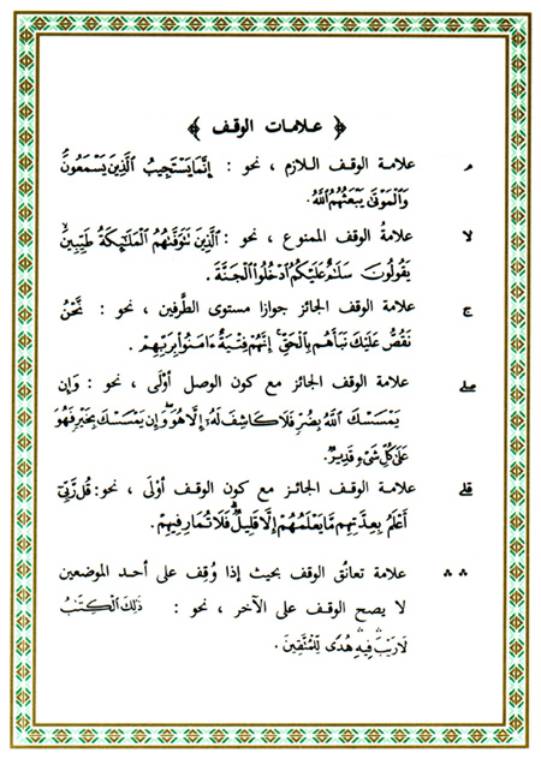 ﴿ علامات الوقف ﴾
مـ علامة الوقف اللازم ، نحو : إِنَّمَا يَسْتَجِيبُ ٱلَّذِينَ يَسْمَعُونَۘ
وَٱلْمَوْتَىٰ يَبْعَثُهُمُ ٱللَّهُ .
لا علامةُ الوقف الممنوع ، نحو : ٱلَّذِينَ تَتَوَفَّىٰهُمُ ٱلْمَلَٰٓئِكَةُ طَيِّبِينَۙ
يَقُولُونَ سَلَٰمٌ عَلَيْكُمُ ٱدْخُلُوا۟ ٱلْجَنَّةَ .
ج علامة الوقف الجائز جوازا مستوى الطَّرفين ، نحو : نَّحْنُ
نَقُصُّ عَلَيْكَ نَبَأَهُم بِٱلْحَقِّۚ إِنَّهُمْ فِتْيَةٌ ءَامَنُوا۟ بِرَبِّهِمْ .
صلے علامة الوقف الجائز مع كون الوصل أوْلَى ، نحو : وَإِن
يَمْسَسْكَ ٱللَّهُ بِضُرٍّ فَلَا كَاشِفَ لَهُۥٓ إِلَّا هُوَۖ وَإِن يَمْسَسْكَ بِخَيْرٍ فَهُوَ
عَلَىٰ كُلِّ شَىْءٍ قَدِيرٌ .
قلے علامة الوقف الجائز مع كون الوقف أوْلَى ، نحو : قُل رَّبِّىٓ
أَعْلَمُ بِعِدَّتِهِم مَّا يَعْلَمُهُمْ إِلَّا قَلِيلٌۗ فَلَا تُمَارِ فِيهِمْ .
∴ ∴ علامة تعانُق الوقف بحيث إذا وُقِف على أحد الموضعين
لا يصح الوقف على الآخر ، نحو : ذَٰلِكَ ٱلْكِتَٰبُ
لَا رَيْبَۛ فِيهِۛ هُدًى لِّلْمُتَّقِينَ .